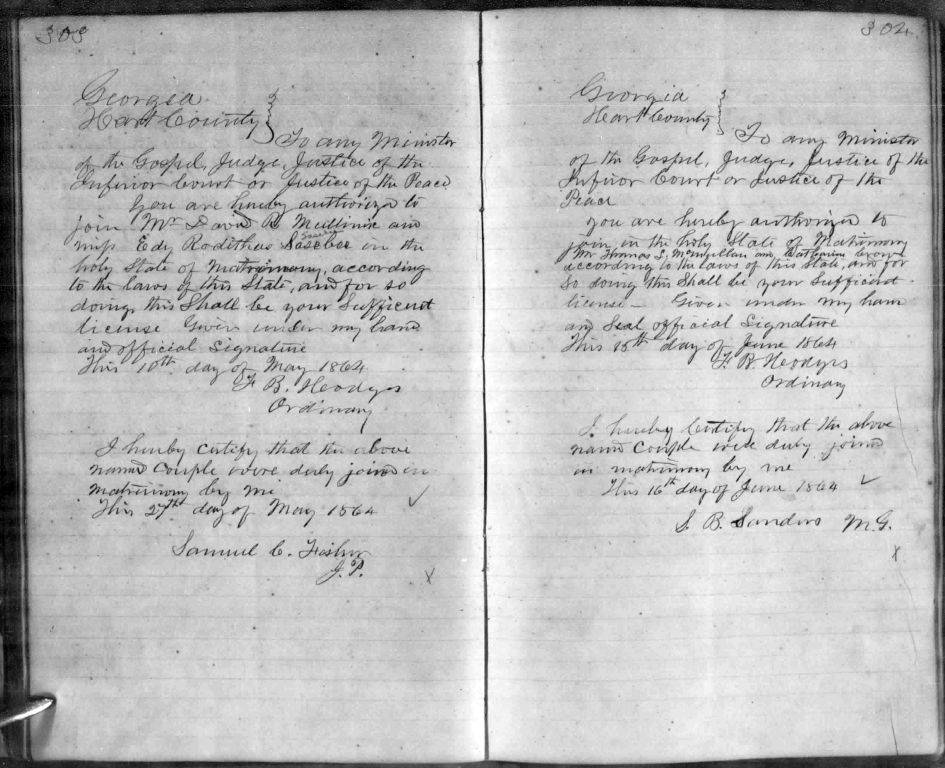 303
Georgia
Hart County }
To any Minister
of the Gospel, Judge, Justice of the
Inferior Court or Justice of the Peace
You are hereby authorize to
join Mr David R Mullinix and
miss Edy in the
holy State of matrimony, according
to the laws of this State, and for so
doing this Shall be your Sufficient
license Given under my hand
and official Signature
This 10th day of May 1864
F. B. Hodges
Ordinary
I hereby certify that the above
named Couple were duly joined in
matrimony by me
This 27th day of May 1864
Samuel C. Fisher
J. P.
302
Georgia
Hart County }
To any Minister
of the Gospel, Judge, Justice of the
Inferior Court or Justice of the
Peace
you are hereby authorized to
join in the holy State of Matrimony
Mr Thomas S. McMullan and Catharine Brown
according to the laws of this State, and for
So doing this Shall be your Sufficient
license – Given under my han
and Seal official Signature
This 15th day of June 1864
F. B. Hodges
Ordinary
I hereby Certify that the above
named Couple were duly joined
in matrimony by me
This 16th day of June 1864
S. B. Sanders M. G.